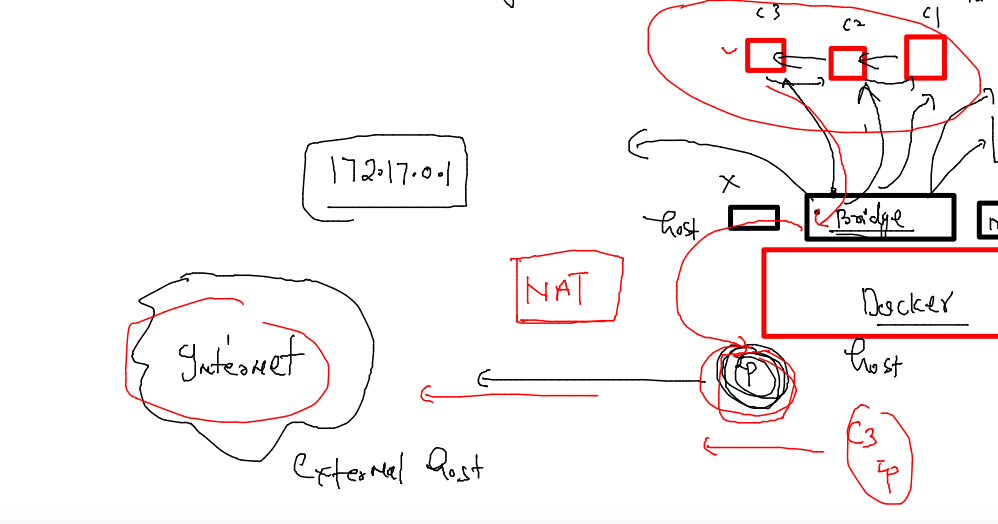 C3 C2 C1
172.17.0.1
X
host
Bridge
NAT
Docker
Internet
host
IP
C3
IP
External host